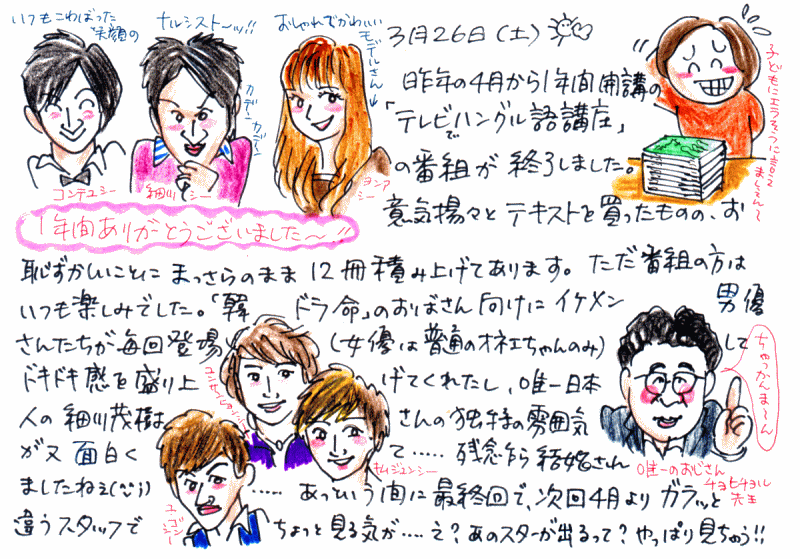 いつもこわばった
笑顔の
ナルシスト〜ッ!!
おしゃれでかわいい
モデルさん
3月26日(土)
コンテユシー
細川シー
ヨンアシー
1年間ありがとうございました〜!!
昨年の4月から1年間開講の
「テレビでハングル語講座」
の番組が終了しました。
意気揚々とテキストを買ったものの、お
恥ずかしいことにまっさらのまま12冊積み上げてあります。ただ番組の方は
いつも楽しみでした。「韓ドラ命」のおばさん向けにイケメン男優
さんたちが毎回登場(女優は普通のオネエちゃんのみ)して
ドキドキ感を盛り上げてくれたし、唯一日本
人の細川茂樹さんの独特の雰囲気
がス面白くて‥‥‥残念乍ら結婚さん
ましたねぇ(^^;)‥‥‥あっという間に最終回で、次回4月よりガラッと
違うスタッフでちょっと見る気が‥‥え?あのスターが出るって?やっぱり見ちゃう!!
キムジュンシー
ちゃっかんま〜ん
唯一のおじさん
チョヒチョル
先生